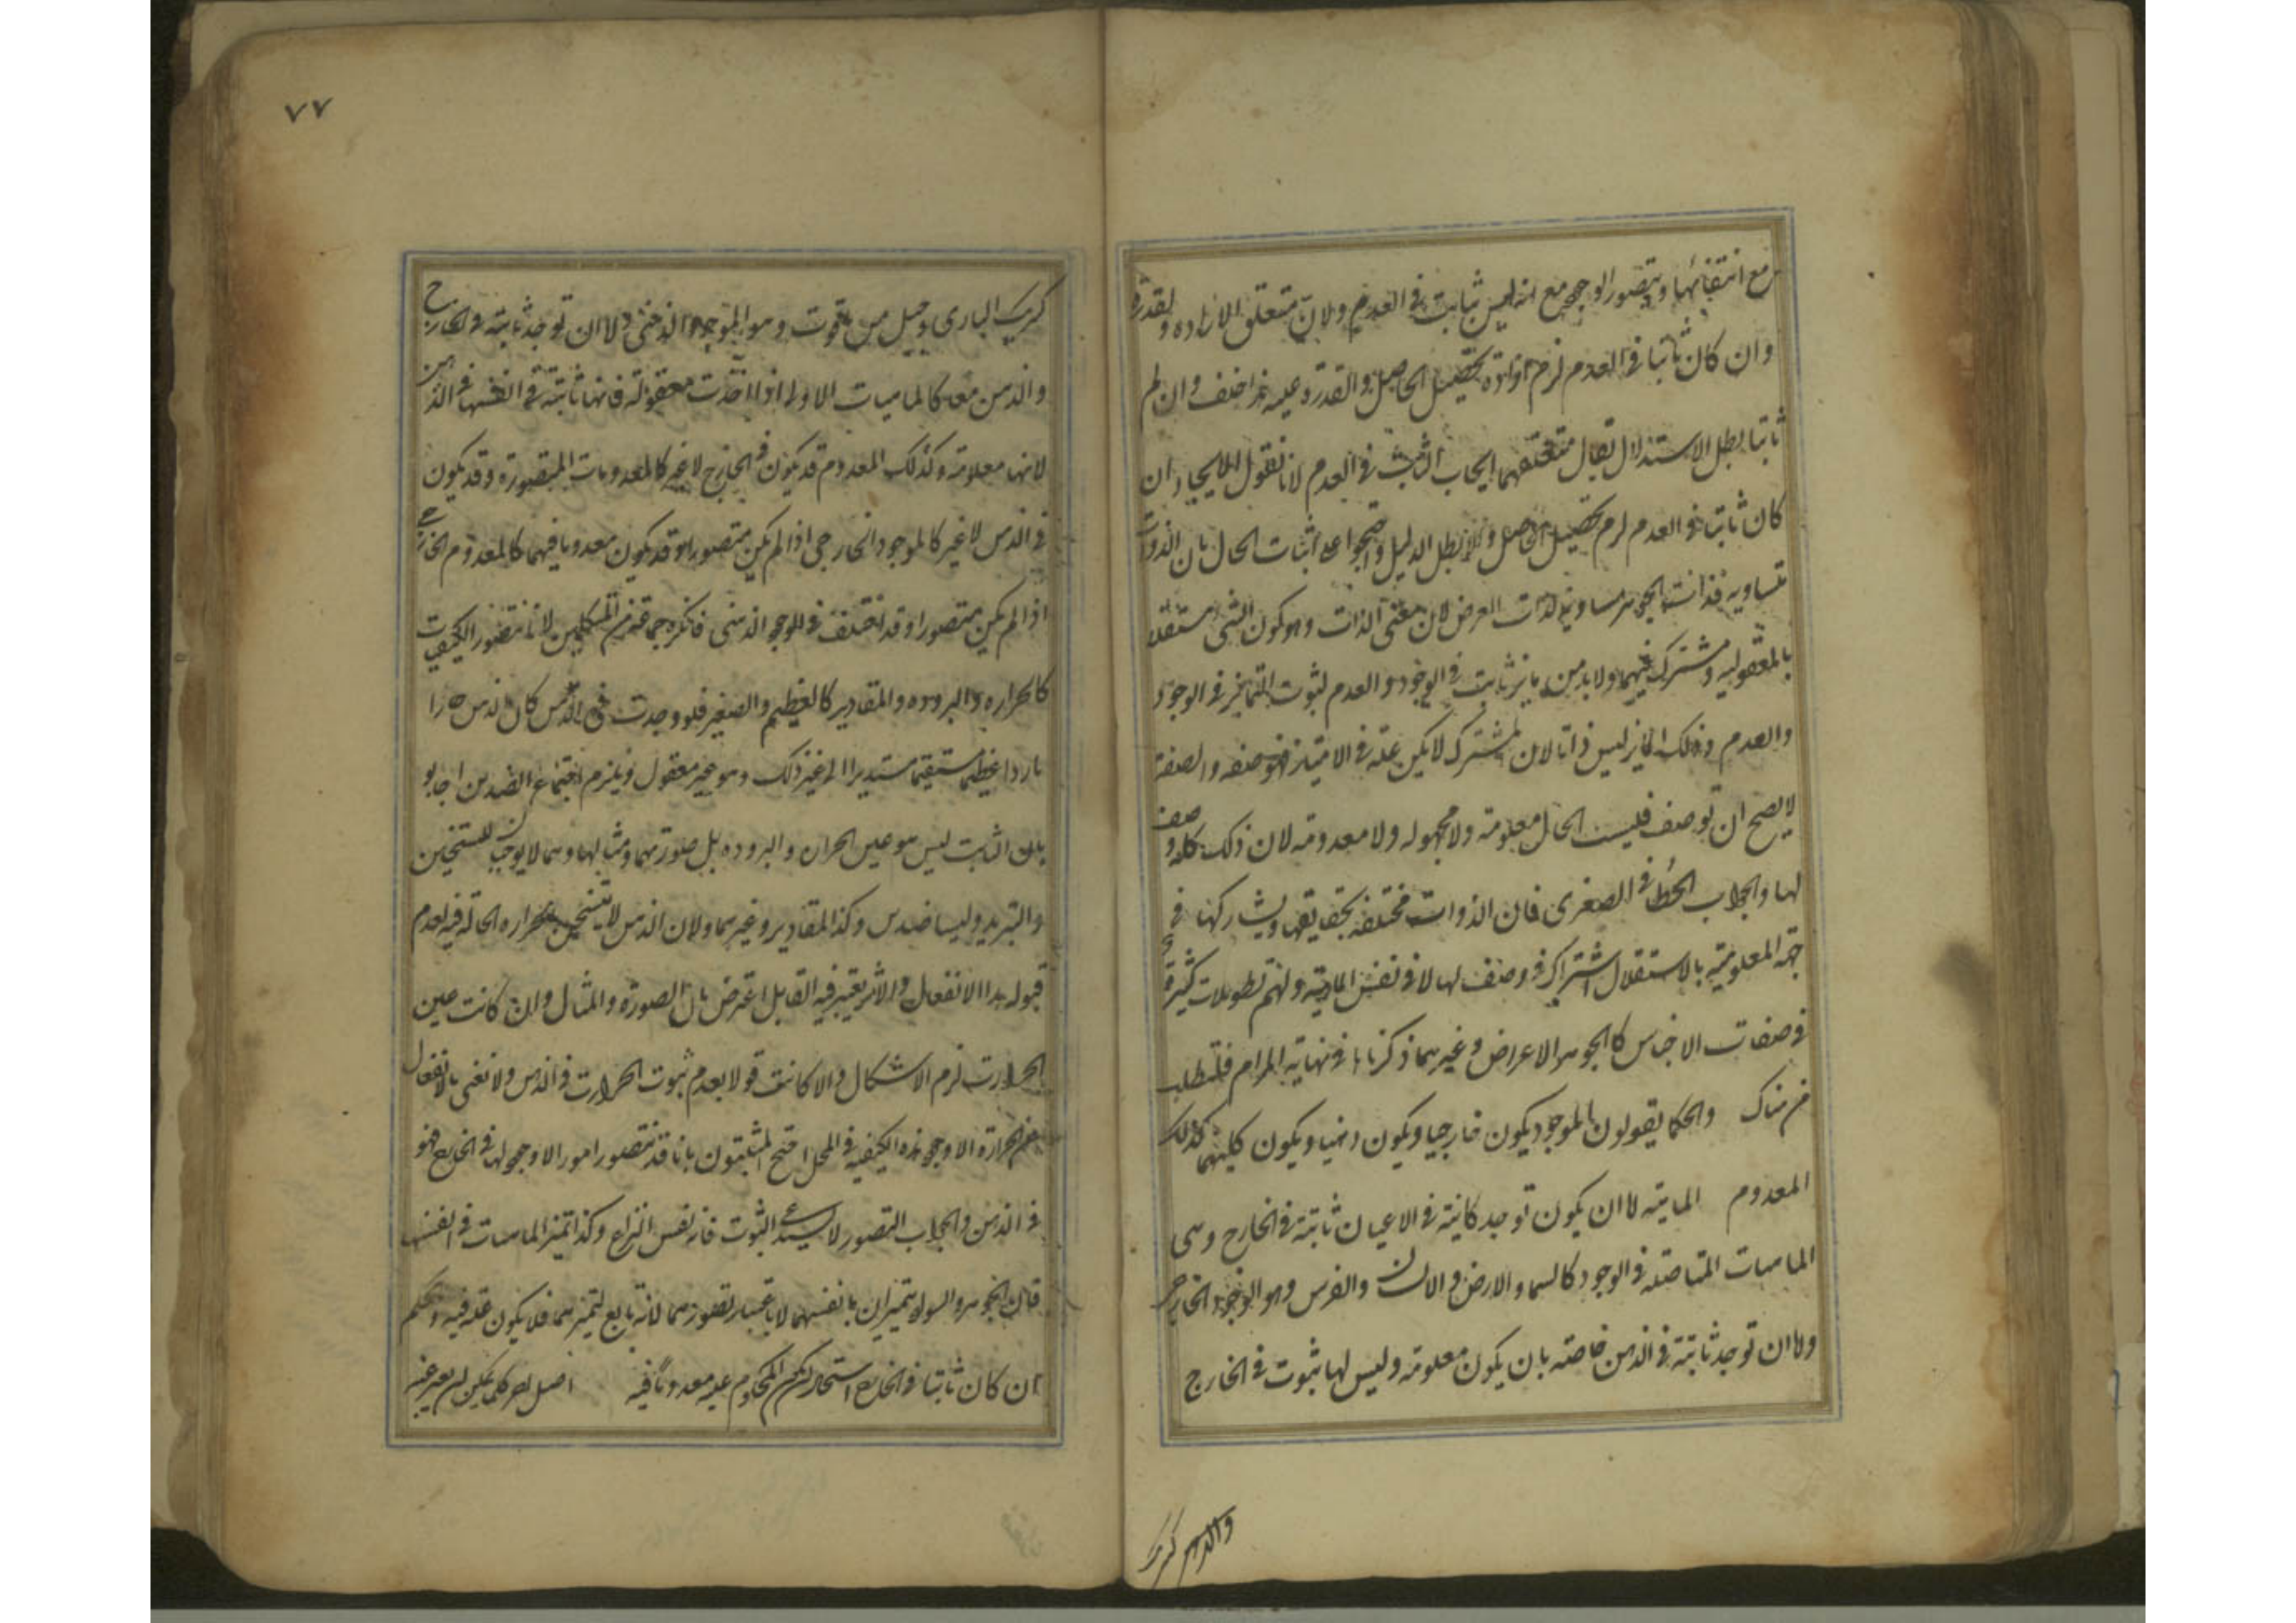 مع انتفائها ويتصور الوجود مع انه ليس ثابت في العدم ولان متعلق الاراده والقدرة
وان كان ثابتا في العدم لزم ارادة تحصيل الحاصل والقدرة عليه هذا خلف وان لم
ثابتا بطل الاستدلال لا يقال متعلقهما ايجاب الثابت في العدم لانا نقول الايجاد ان
كان ثابتا في العدم لزم تحصيل الحاصل والا بطل الدليل واحتجوا على اثبات الحال بان الذوات
متساويه فذات الجوهر مساوية لذات العرض لان معنى الذات وهو كون الشي مستقلا
بالمعقوليه مشترك فيهما ولا بد من مايز ثابت في الوجود والعدم لثبوت التمايز في الوجود
والعدم وذلك المايز ليس ذاتا لان المشترك لا يكون علة في الامتياز فهو صفه والصفة
لا يصح ان توصف فليست الحال معلومة ولا مجهوله ولا معدومه لان ذلك كله وصف
لها والجواب الخطأ في الصغرى فان الذوات مختلفه بحقايقها ويشاركها في
جهة المعلوميه بالاستقلال اشتراك في وصف لها لا في نفس الماهية ولهم تطويلات كثيرة
في صفات الاجناس كالجوهر والاعراض وغيرهما ذكرناها في نهاية المرام فلتطلب
من هناك والحكما يقولون الموجود يكون خارجيا ويكون ذهنيا ويكون كليهما كذلك
المعدوم الماهية لا ان يكون توجد كاينة في الاعيان ثابتة في الخارج وهي
الماهيات المتاصله في الوجود كالسما والارض والانسان والفرس وهو الوجود الخارجي
ولا ان توجد ثابتة في الذهن خاصه بان يكون معلومة وليس لها ثبوت في الخارج
والذهن كشريك
٧٧
كشريك الباري وجبل من ياقوت وهو الموجود الذهني ولا ان توجد ثابتة في الخارج
والذهن معا كالماهيات الاولى اذا اخذت معقولة فانها ثابتة في انفسها في الذهن
لانها معلومة وكذلك المعدوم قد يكون في الخارج لا غير كالمعدومات المتصورة وقد يكون
في الذهن لا غير كالموجود الخارجي اذا لم يكن متصورا وقد يكون معدوما فيهما كالمعدوم الخارجي
اذا لم يكن متصورا وقد اختلف في الوجود الذهني فانكره جماعة من المتكلمين لانا نتصور الكيفيات
كالحراره والبروده والمقادير كالعظيم والصغير فلو وجدت في الذهن كان الذهن حارا
باردا عظيما مستقيما مستديرا الى غير ذلك وهو غير معقول ويلزم اجتماع الضدين اجابوا
بان الثابت ليس هو عين الحراره والبروده بل صورتهما ومثالهما وهما لا يوجبان التسخين
والتبريد وليسا ضدين وكذا المقادير وغيرهما ولان الذهن لا يتسخن بالحراره الحالة فيه لعدم
قبوله هذا الانفعال والاثر يعتبر فيه القابل اعترض بان الصورة والمثال وان كانت عين
الحرارت لزم الاشكال والا كانت قولا بعدم ثبوت الحرارت في الذهن ولا نعني بالانفعال
عن الحرارة الا وجود هذه الكيفيه في المحل احتج المثبتون بانا قد نتصور امورا لا وجود لها في الخارج فهو
في الذهن والجواب التصور لا يستدعي الثبوت فانه نفس النزاع وكذا تميز الماهيات في انفسها
فان الجوهر والسواد يتميزان بانفسهما لا باعتبار تصورهما لانه تابع لتميزهما فلا يكون علة فيه والحكم
ان كان ثابتا في الخارج استحال كون المحكوم عليه معدوما فيه اصل